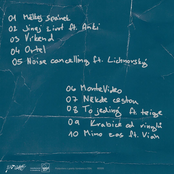 01 Mělkej spánek
02 Jinej život ft. Aiki
03 Víkend
04 Ortel
05 Noise cancelling ft. Lichnovský
06 Montevideo
07 Někde cestou
08 To jediný ft. teige
09 Krabice od ringlí
10 Mimo zas ft. Vian